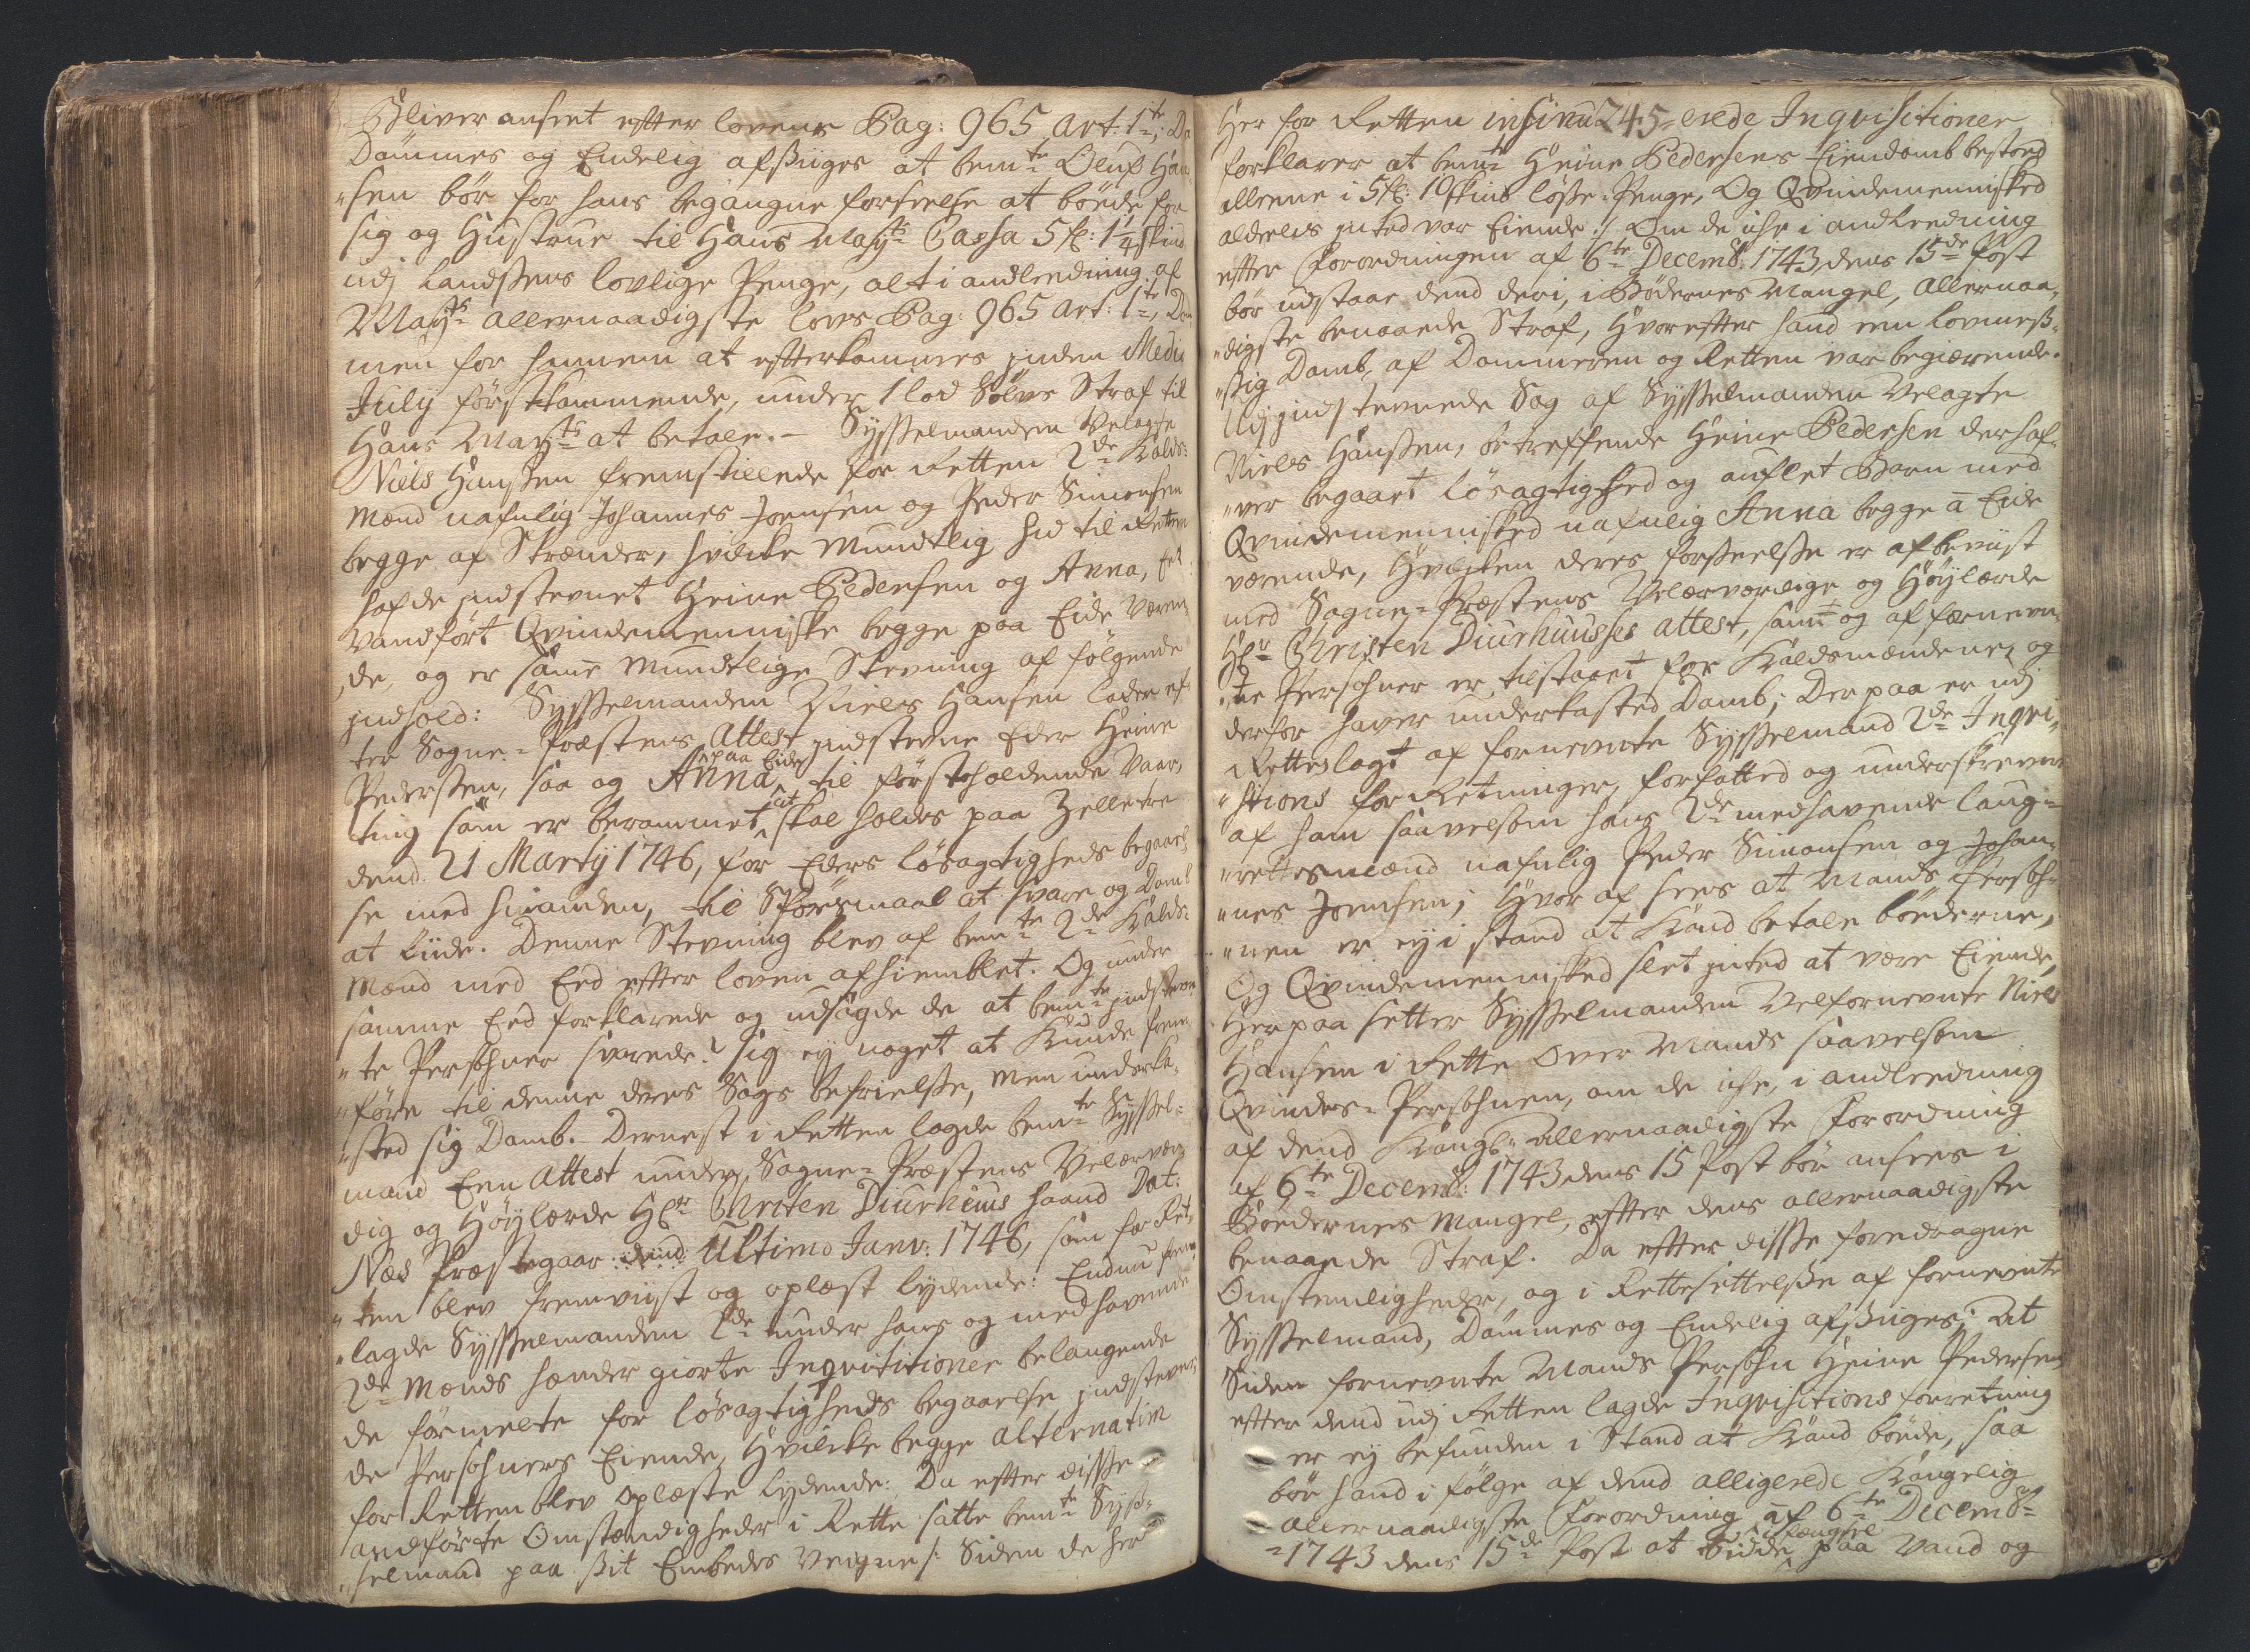 Bliver anseet efter lovens Pag: 965 Art: 1te; Da
Dømmes og Endelig afsiiges at bemte Oluf Han¬
„sen bør for hans begangne forseelse at bøede for
sig og Hustrue til Hans Mayts Cassa 5 f: 1¼ skind
udj Landssens lovlige Penge, alt i andleedning af
Mayts allernaadigste lovs Pag: 965 Art: 1te, Dom¬
men for hannem at efterkommes inden Medio
July førstkommende, under 1 lod Sølvs Straf til
Hans Mayts at betale. – Sysselmanden Velagte
Niels Hanssen fremstillede for Retten 2de Kalds¬
Mænd nafnlig Johannes Joensen og Peder Simonsen
begge af Strænder, hvilcke Mundtlig hid til Retten
hafde indstevnet Heine Pedersen og Anna, et
vandført Qvindemenniske begge paa Eide væren¬
„de, og er samme Mundtlige Stevning af følgende
indhold: Sysselmanden Niels Hansen lader ef¬
ter Sogne-Præstens Attest indstevne Eder Heine
Pedersen, saa og Anna paa Eide til førstholdende Vaar¬
ting som er berammet at skal holdes paa Zelletræ
dend 21 Marty 1746, for Eders løsagtigheds begaael¬
se med hinanden, til Spørsmaal at svare og Domb
at liide. Denne Stevning blev af bemte 2de Kalds¬
Mænd med Eed efter loven afhiemblet. Og under
samme Eed forklarede og udsagde de at bemte indstevn¬
„te Persohner svarede sig ey noget at kunde frem¬
„føre til denne deres Sags befrielsse, men underka¬
„sted sig Domb. – Dernest i Retten lagde bemte Syssel¬
mand Een Attest under Sogne-Præstens Velærvær¬
dig og Høylærde Hr Christen Diurhuus haand Dat:
Næs Præstegaar dend Ultimo Janv: 1746, som for Ret¬
„ten blev fremviist og oplæst lydende: Endnu frem¬
„lagde Sysselmanden 2de under hans og medhavende
2de Mænds hænder giorte Inqvititioner belangende
de formelte for løsagtigheds begaaelse indstevn¬
de Persohners Eiende, Hvilcke begge alternatim
for Retten blev oplæste lydende: Da efter disse
andførte Omstændigheder i Rette satte bemte Sys¬
„selmand paa sit Embeds Vegne /: Siden de her
245
Her for Retten insinuerede Inqvisitioner
forklarer at bemte Heine Pedersens Eiendomb bestoed
alleene i 5 f: 10 skind løsse-Penge, Og Qvindemennisket
aldeles inted var Eiende :/ Om de iche i andleedning
efter Forordningen af 6te Decemb: 1743 dens 15de Post
bør udstaae dend deri, i Bødernes Mangel, allernaa¬
„digste benaaede Straf, Hvorefter hand een lovmæs¬
„sig Domb, af Dommeren og Retten var begiærende.
Udj indstevnede Sag af Sysselmanden Velagte
Niels Hanssen, betreffende Heine Pedersen der haf¬
„ver begaaet løsagtighed og auflet Barn med
Qvindemennisket nafnlig Anna begge a Eide
værende, Hvilken deres forseelsse er afbeviist
med Sogne-Præstens Velærværdige og Høylærde
Hr Christen Diurhuusses attest, samt og af fornevn¬
„te Persohner er tilstaaet for Kaldsmændene, og
derfor haver underkasted Domb; Derpaa er udj
Rette lagt af fornevnte Sysselmand 2de Inqvi¬
„sitions forRetninger, forfatted og underskreven
af ham saavelsom hans 2de medhavende laug¬
„rettesmænd nafnlig Peder Simonsen og Johan¬
„nes Joensen; Hvor af sees at Mands Persoh¬
„nen er ey i stand at Kand betale bøederne,
Og Qvindemennisket slet inted at være Eiende,
Herpaa setter Sysselmanden Velfornevnte Niels
Hansen i Rette Over Mands saavelsom
Qvindes-Persohnen, om de iche, i andleedning
af dend Kongl: Allernaadigste Forordning
af 6te Decemb: 1743 dens 15 Post bør ansees i
Bøedernes Mangel, efter dens allernaadigste
benaaede Straf. Da efter disse foredragne
Omstendigheder, og i Rettesettelsse af fornevnte
Sysselmand, Dømmes og Endelig afsiiges; At
Siden fornevnte Mands Persohn Heine Pedersen
efter dend udj Retten lagde Inqvisitions forretning
er ey befunden i Stand at Kand bøede, saa
bør hand i følge af dend alligerede Kongelig
allernaadigste Forordning af 6te Decemb:
1743 dens 15de Post at Sidde i fængsel paa Vand og